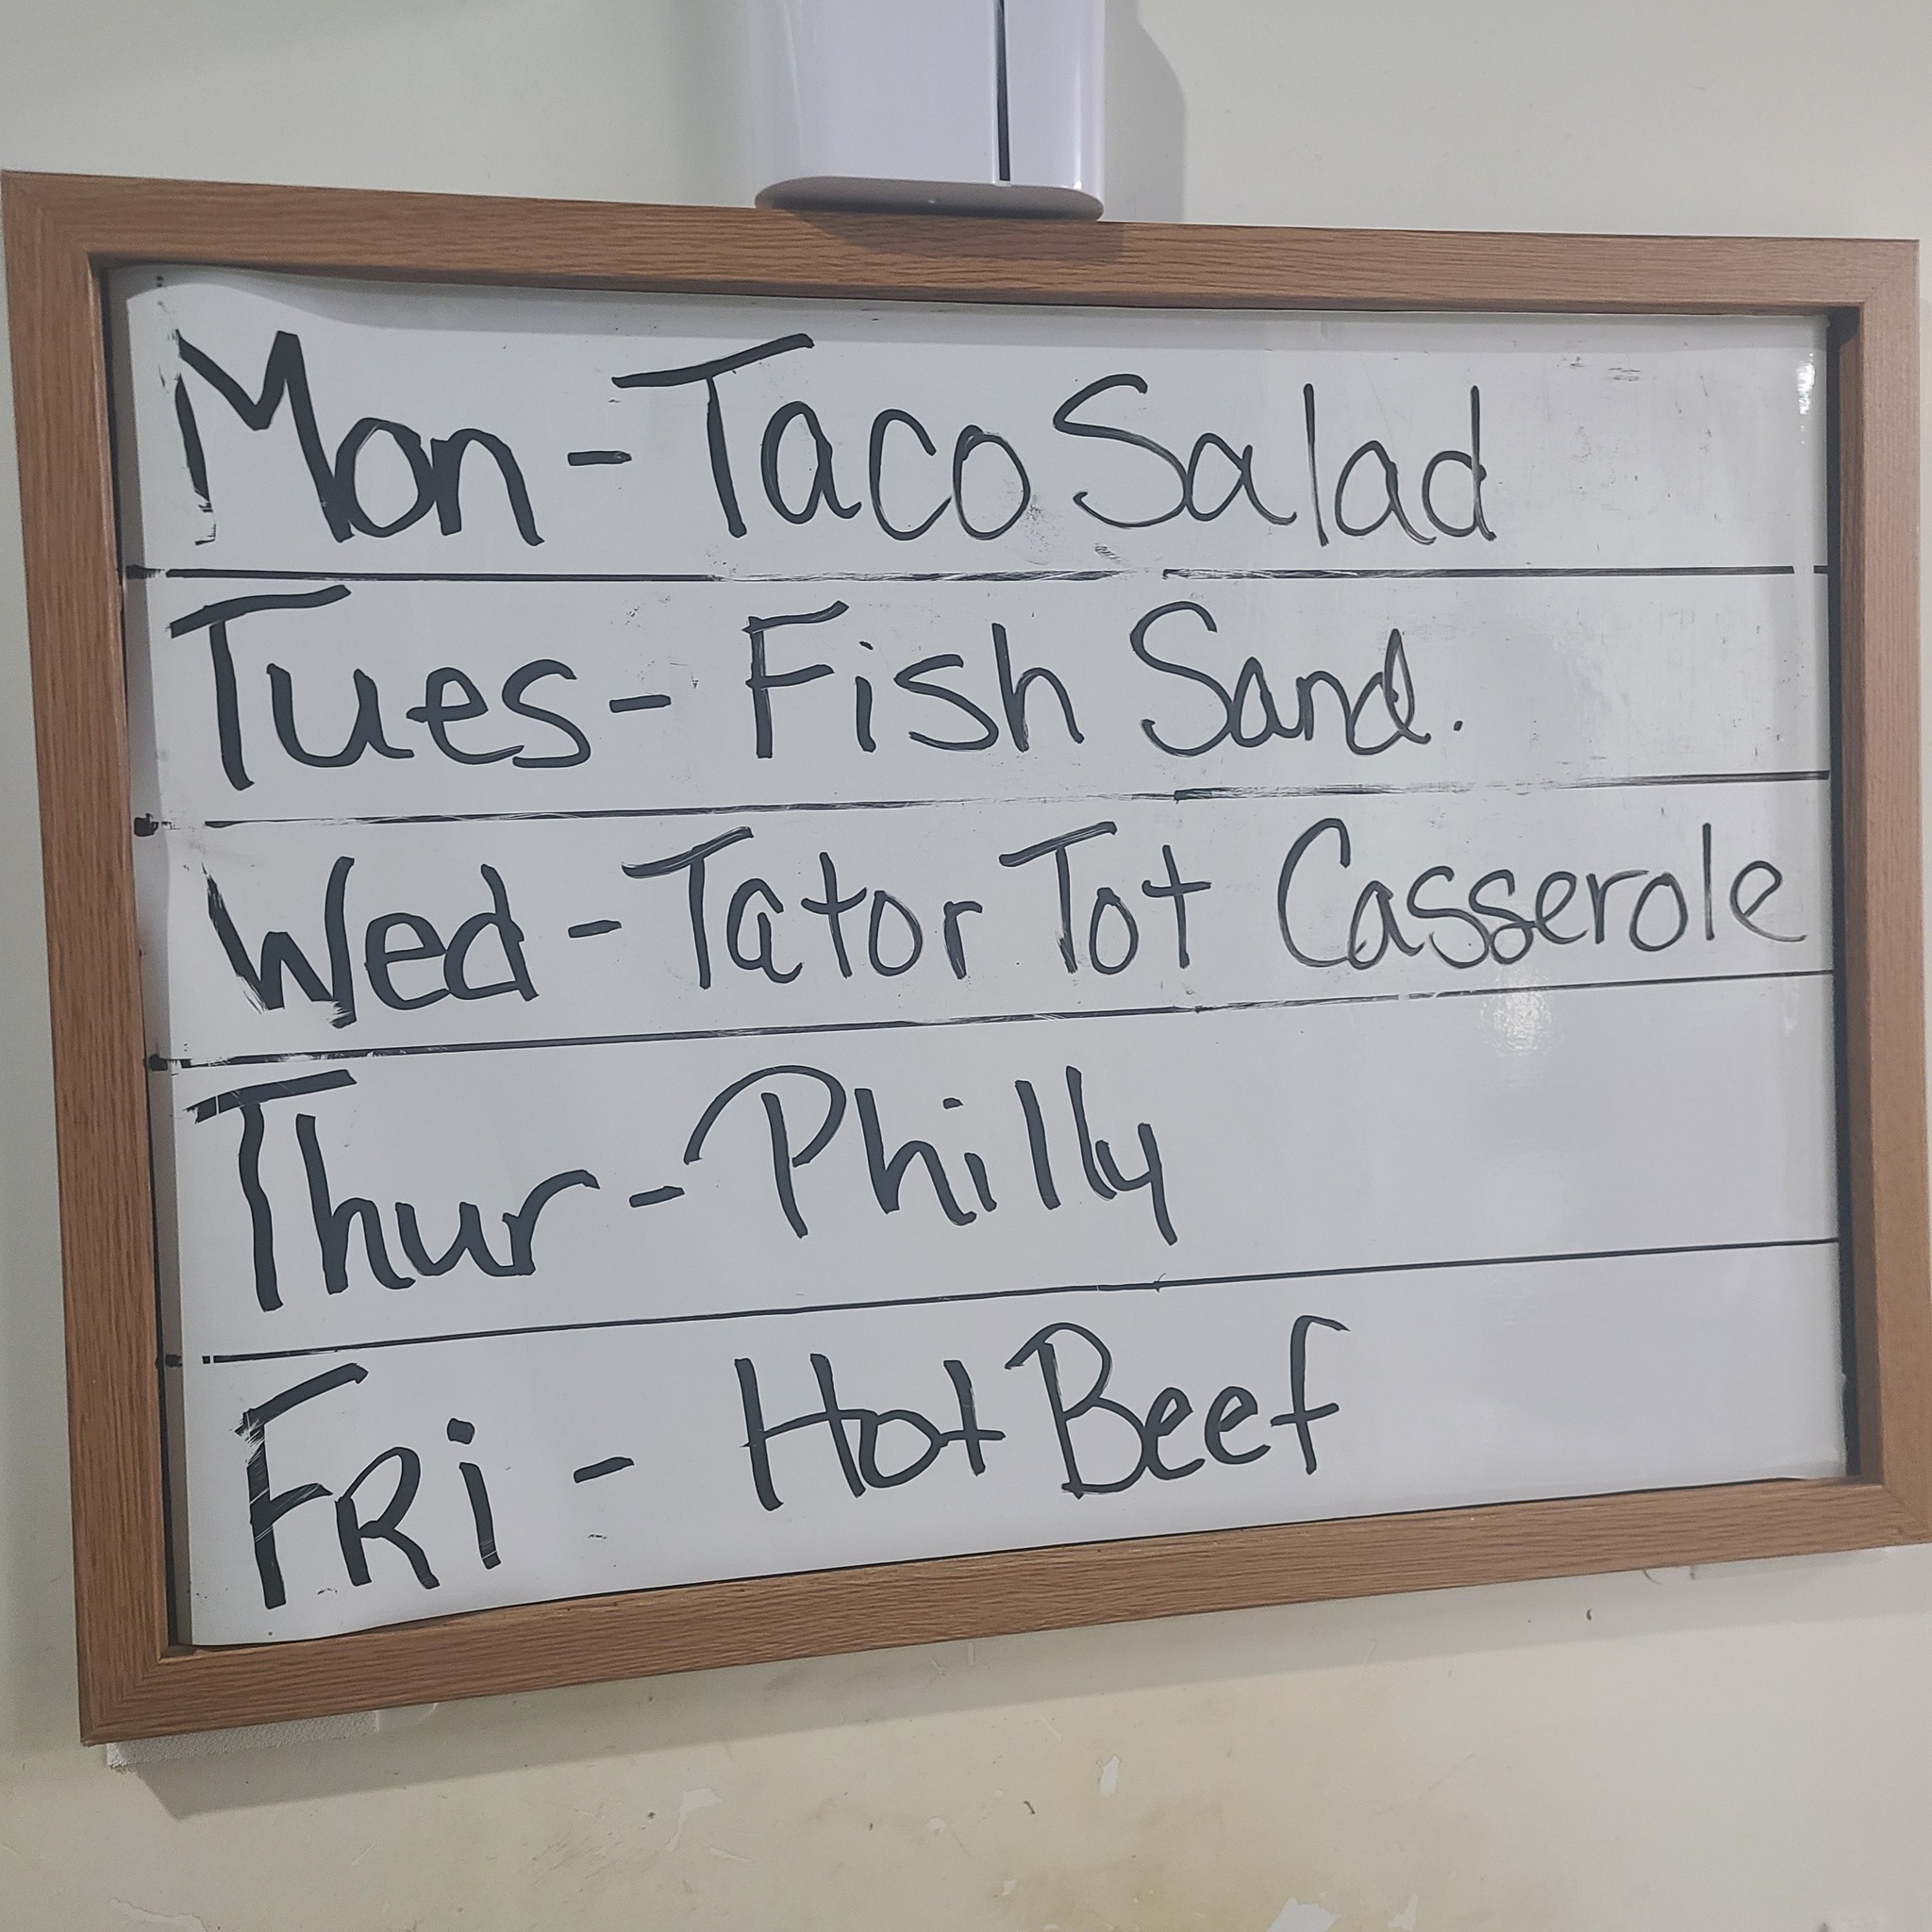 Mon - Taco Salad
Tues - Fish Sand.
Wed - Tator Tot Casserole
Thur - Philly
FRi - Hot Beef